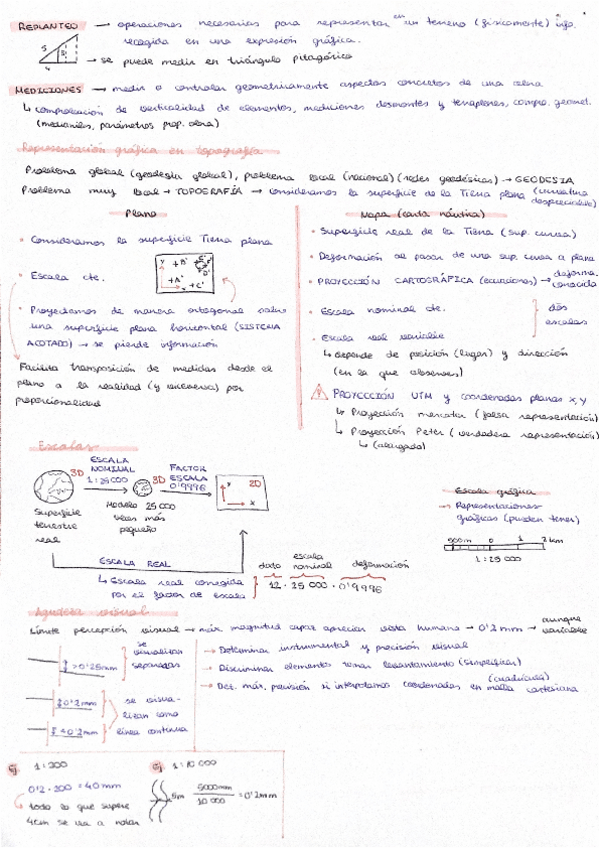 REPLANTEO → operaciones necesarias para representar en un terreno (físicamente) info.
recogida en una expresión gráfica.
→ se puede medir en triángulo pitagórico
5
3
4
MEDICIONES → medir o controlar geométricamente aspectos concretos de una obra
↳ comprobación de verticalidad de elementos, mediciones desmontes y terraplenes, compro. geomet.
(medianiles, parámetros prop. obra)
Representación gráfica en topografía
Problema global (geodesia global), problema local (nacional) (redes geodésicas) → GEODESIA
Problema muy local → TOPOGRAFÍA → consideramos la superficie de la Tierra plana (curvatura
despreciable)
Plano
• Consideramos la superficie Tierra plana
• Escala cte.
Y
X
+A'
+B'
+C'
• Proyectamos de manera ortogonal sobre
una superficie plana horizontal (SISTEMA
ACOTADO) → se pierde información
Facilita transposición de medidas desde el
plano a la realidad (y viceversa) por
proporcionalidad
Mapa (carta náutica)
• Superficie real de la Tierra (sup. curva)
• Deformación al pasar de una sup. curva a plana
• PROYECCIÓN CARTOGRÁFICA (ecuaciones) → deforma.
conocida
• Escala nominal cte.
• Escala real variable
dos
escalas
↳ depende de posición (lugar) y dirección
(en la que observes)
PROYECCIÓN UTM y coordenadas planas X, Y
↳ Proyección mercator (falsa representación)
↳ Proyección Peter (verdadera representación)
↳ (alargada)
Escalas
3D
ESCALA
NOMINAL
1:25 000
3D
FACTOR
ESCALA
0'9996
2D
Y
X
Superficie
terrestre
real
Modelo 25 000
veces más
pequeño
ESCALA REAL
↳ Escala real corregida
por el factor de escala
dato
escala
nominal
deformación
12 · 25 000 · 0'9996
Escala gráfica
→ Representaciones
gráficas (pueden tener)
500m 0 1 2 km
1:25 000
Agudeza visual
Límite percepción visual → máx. magnitud capaz apreciar vista humana → 0'2 mm → aunque
variable
>0'25mm
se
visualizan
separadas
0'2mm
<0'2mm
se visua-
lizan como
línea continua
→ Determina instrumental y precisión visual
→ Discriminar elementos tomar levantamiento (simplificar)
→ Det. máx. precisión si interpolamos coordenadas en malla cartesiana
(cuadrícula)
Ej. 1:200
0'2 · 200 = 40 mm
todo lo que supere
4cm se va a notar
Ej. 1:10 000
5m
5000mm
10 000
= 0'2mm